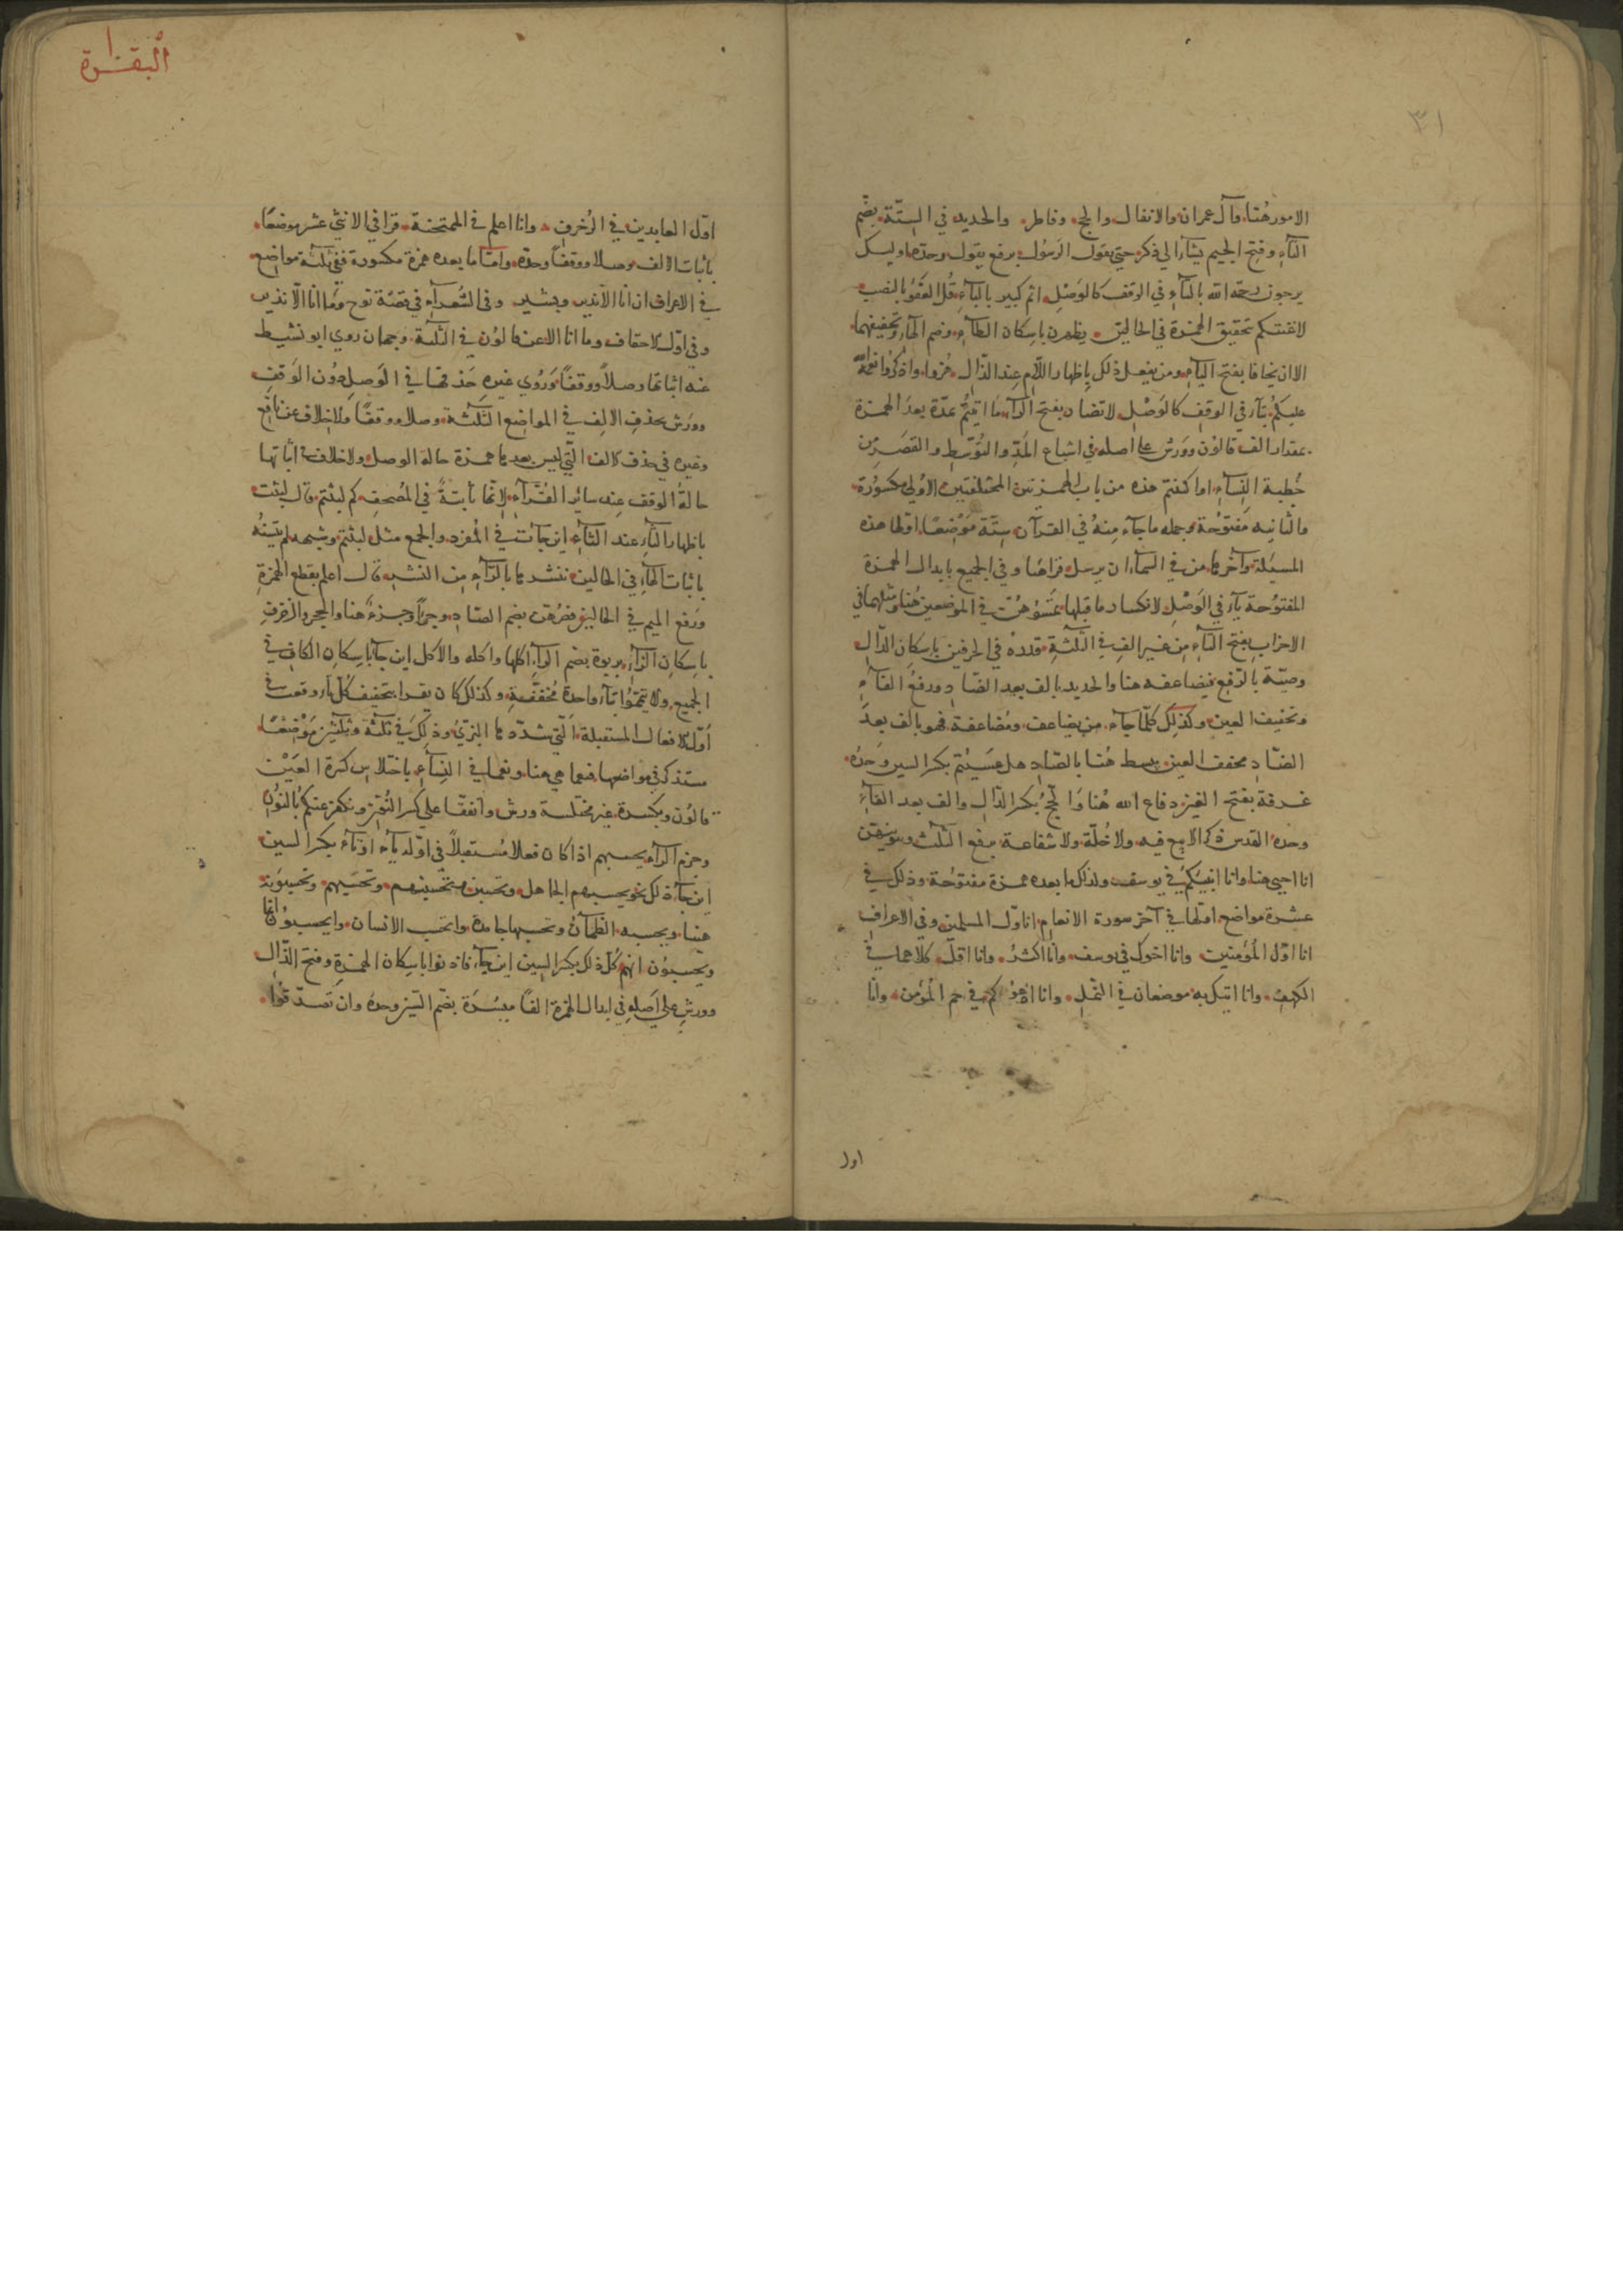 ٣١
الامور هُنا وآل عمران والانفال والحج وفاطر والحديد في الستّة بضم
التآء وفتح الجيم يشآء الي ذكر حتي يقول الرسُول برفع يقول وحده اوليك
يرجون رحمة الله بالتآء في الوقف كالوَصْل اثم كبير بالبآء قُل العَفو بالنصب
لاعنتكم تحقيق الهمزة في الحالين يطهرن باسكان الطآء وضم الهآء وتخفيفهما
الا ان يخافا بفتح اليآء ومن يفعل ذلك باظهار اللام عند الذّال هُزوا واذكرُوا نعمة الله
عليكم بتآء في الوقف كالوَصْل لا تضار بفتح الرآء ما اتيتُم بمدّة بعد الهمزة
بمقدار الف قالون وورش علي اصله في اشباع المدّ والتوّسط والقصر من
خُطبة النِسآء او اكننتم هذه من باب الهمزتين المختلفتين الاولي مكسُورة
والثانيه مفتوُحة وجمله ما جآء منهُ في القرآن ستّة موْضعًا اولها هذه
المسئلة وآخرها من في السمآء ان يرسل قراهُا وفي الجميع بابدال الهمزة
المفتوُحة يآء في الوَصْل لانكسار ما قبلها تمَسّوُهُنّ في الموضعين هُنا ومثلهما في
الاحزاب بفتح التآء من غير الف في الثلثة قدرهْ في الحرفين باسكان الدّال
وصيّة بالرّفع فيضاعفه هنا والحديد بالف بعد الضّاد ورفعُ الفآء
وتخفيف العين وكذلك كلّما جآء من يضاعف ومُضاعفة فهو بالف بعدَ
الضّاد مخفف العين يبسط هُنا بالصّاد هل عسَيْتم بكسر السين وَحدَهُ
غرفة بفتح الغين دفاع الله هُنا وَالحج بكسر الدّال والف بعد الفآء
وحده القدس ذكر لا بيع فيه ولا خُلّة ولا شفاعة برفع الثلث وبتوينهن
انا احيي هنا وانا انبيُكم في يوسف ولذلك ما بعده همزة مفتوُحة وذلك في
عشرة مواضع اولها في آخر سورة الانعام انا اوّل المسلمين وفي الاعراف
انا اوّل المُؤمنين وانا اخوك في يوسف وانا اكثرُ وانا اقلّ كلاهما في
الكهف وانا اتيك به موضعان في النّمل وانا ادعُوكم في حم المُؤمن وانا
اول
البقرة
اوّل العابدين في الزُخرف وانا اعلم في الممتحنة قرا في الاثني عشر موضعًا
باثبات الالف وصلا ووقفاً وحدَه وامّا ما بعده همزة مكسورة ففي ثلثة مواضع
في الاعراف ان انا الا نذير وبشير وفي الشُعرآء في قصّة نوح وَما انا الّا نذير
وفي اوّل الاحقاف وما انا الا فعن قالوُن في الثلثة وجهان روي ابو نشيط
عنه اثباتها وصلاً ووقفاً وَرُوي غيره حَذفها في الوَصل دوُن الوَقف
وورَش بحذف الالف في المواضع الثلثة وصلا ووقفًا ولا خلاف عن نافع
وغيره في حذف الالف التّي ليس بعدها همزة حالة الوصل ولا خلاف في اثباتها
حالة الوقف عند سائر القُرّآء لانّها ثابتة في المُصحف كم لبثتم قال لبثت
باظهار الثآء عند التآء اين جآت في المُفرد والجمع مثل لبثتم وشبهه لم يتسنّهُ
باثبات الهآء في الحالين ننشرها بالرّآء من النشر قال اعلم بقطع الهمزة
ورَفع الميم في الحالين فصُرهُن بضم الصّاد جزءاً وجزءٌ هنا والحجر والزخرف
باسكان الزآء بربوة بضم الرآء اكلها واكله والاكل اين جآ باسكان الكاف في
الجميع ولا تيمّمُوا بتآء واحدة مُخففة وكذلك كان يقرا بتخفيف كلّ تآء وقعت في
اوّل الافعال المستقبلة التي شدّدها البَزيُ وذلك في ثلثة وثلثين مَوْضِعًا
ستذكر في مواضعها فنعما هي هنا ونعما في النِسآء باختلاس كسرة العَيْن
قالوُن وبكسرة غير مختلسة ورش واتفقا علي كسر النُون ونكفر عنكم بالنوُن
وجزم الرآء يحسبهم اذا كان فعلا مُستقبلاً في اوّله يآء او تآء بكسر السين
اين جآء ذلك نحو يحسبهم الجاهل وتحسبن وتحسبنهم وتحسَبهم وتحسبونه
هيّنا ويحسبه الظمآنُ وتحسبها جامدة وايحسَب الانسان وايحسبوُن انّما
ويحسبوُن انهم كُل ذلك بكسر السين اين جآء فاذنوا باسكان الهمزة وفتح الذّال
وورش علي اَصله في ابدال الهمزة الفًا ميسُرَة بضّم السّين وحدهُ وان تَصدّقوُا